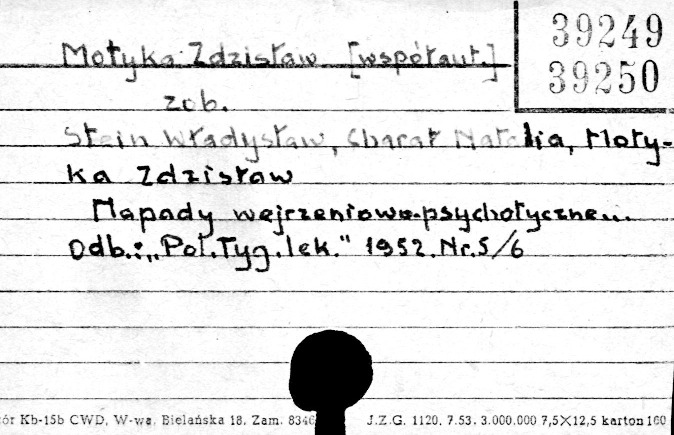 39249
39250
Motyka Zdzisław [współaut.]
zob.
Stein Władysław, Charat Natalia, Moty-
ka Zdzisław
Napady wejrzeniowo-psychotyczne...
Odb.: „Pol.Tyg.lek." 1952.Nr.5/6
ór Kb-15b CWD, W-wa, Bielańska 18. Zam. 8346 J.Z.G. 1120. 7.53. 3.000.000 7,5×12,5 karton 160